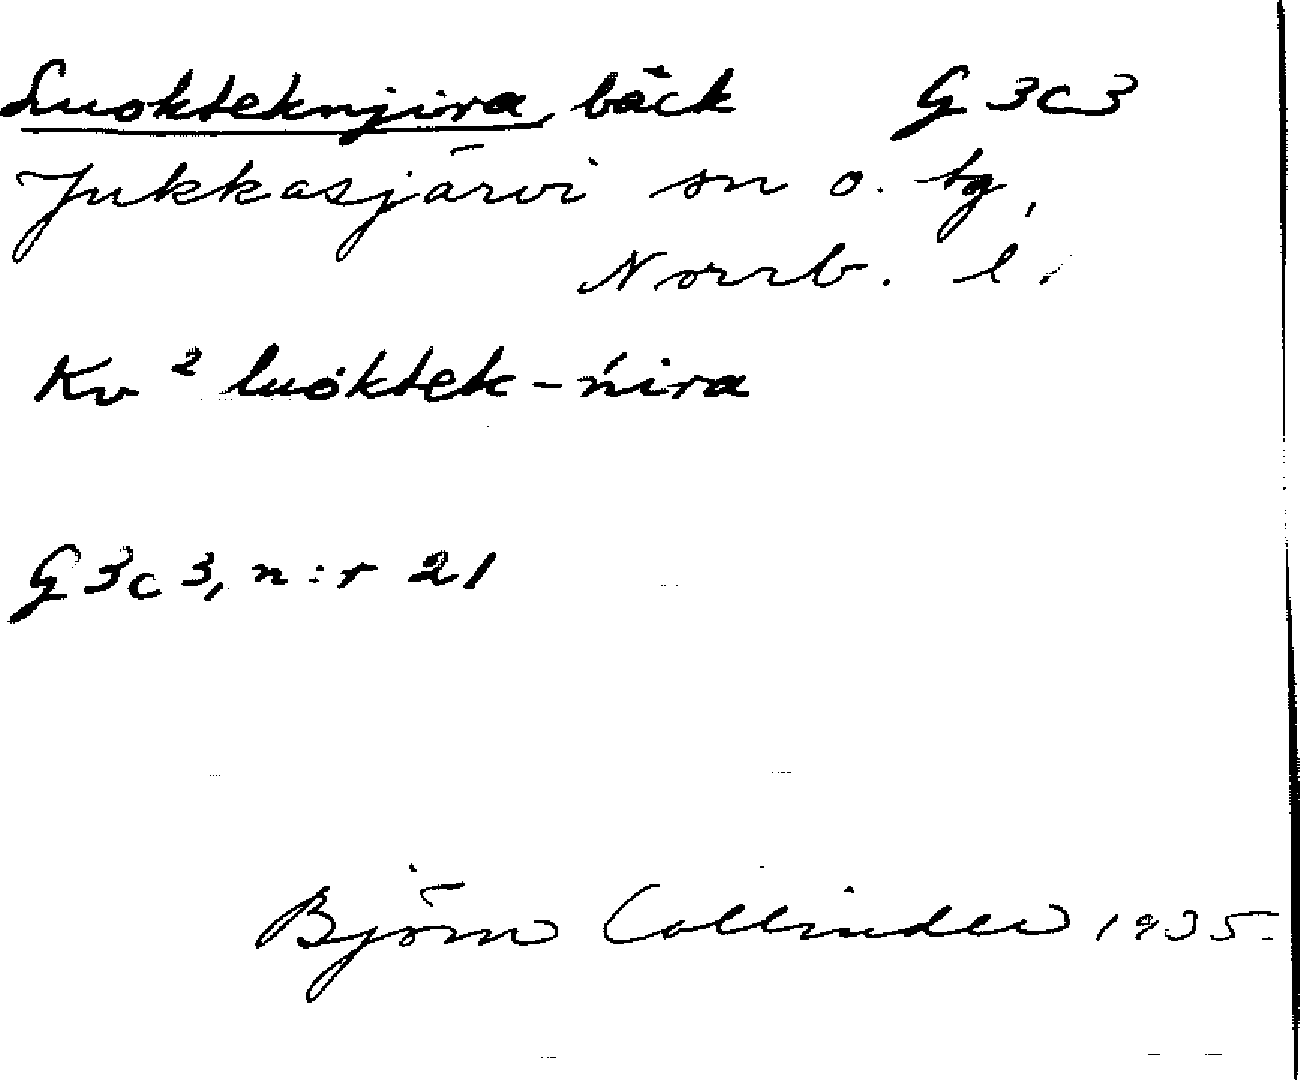 Luokteknjira, bäck G 3c3
Jukkasjärvi sn o. tg,
Norrb. l.
Kv² luȯktek-ńira
G 3c 3, n:r 21
Björn Collinder 1935.